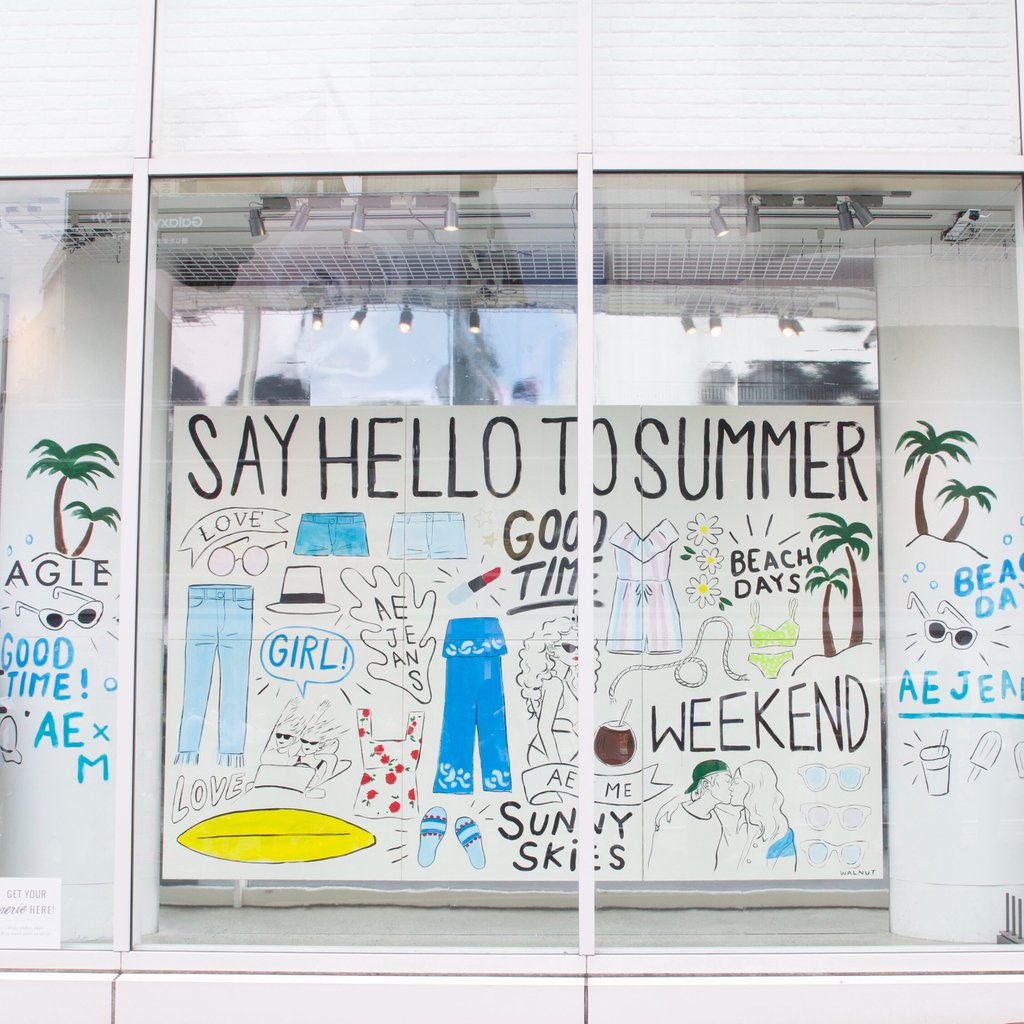 SAY HELLO TO SUMMER
LOVE
GOOD
TIME
BEACH
DAYS
AE
JEANS
GIRL!
WEEKEND
LOVE.
AE ME
SUNNY
SKiES
WALNUT
AGLE
GOOD
TIME!
AE x
M
GET YOUR
HERE!
BEA
DA
AE JEA
Galax